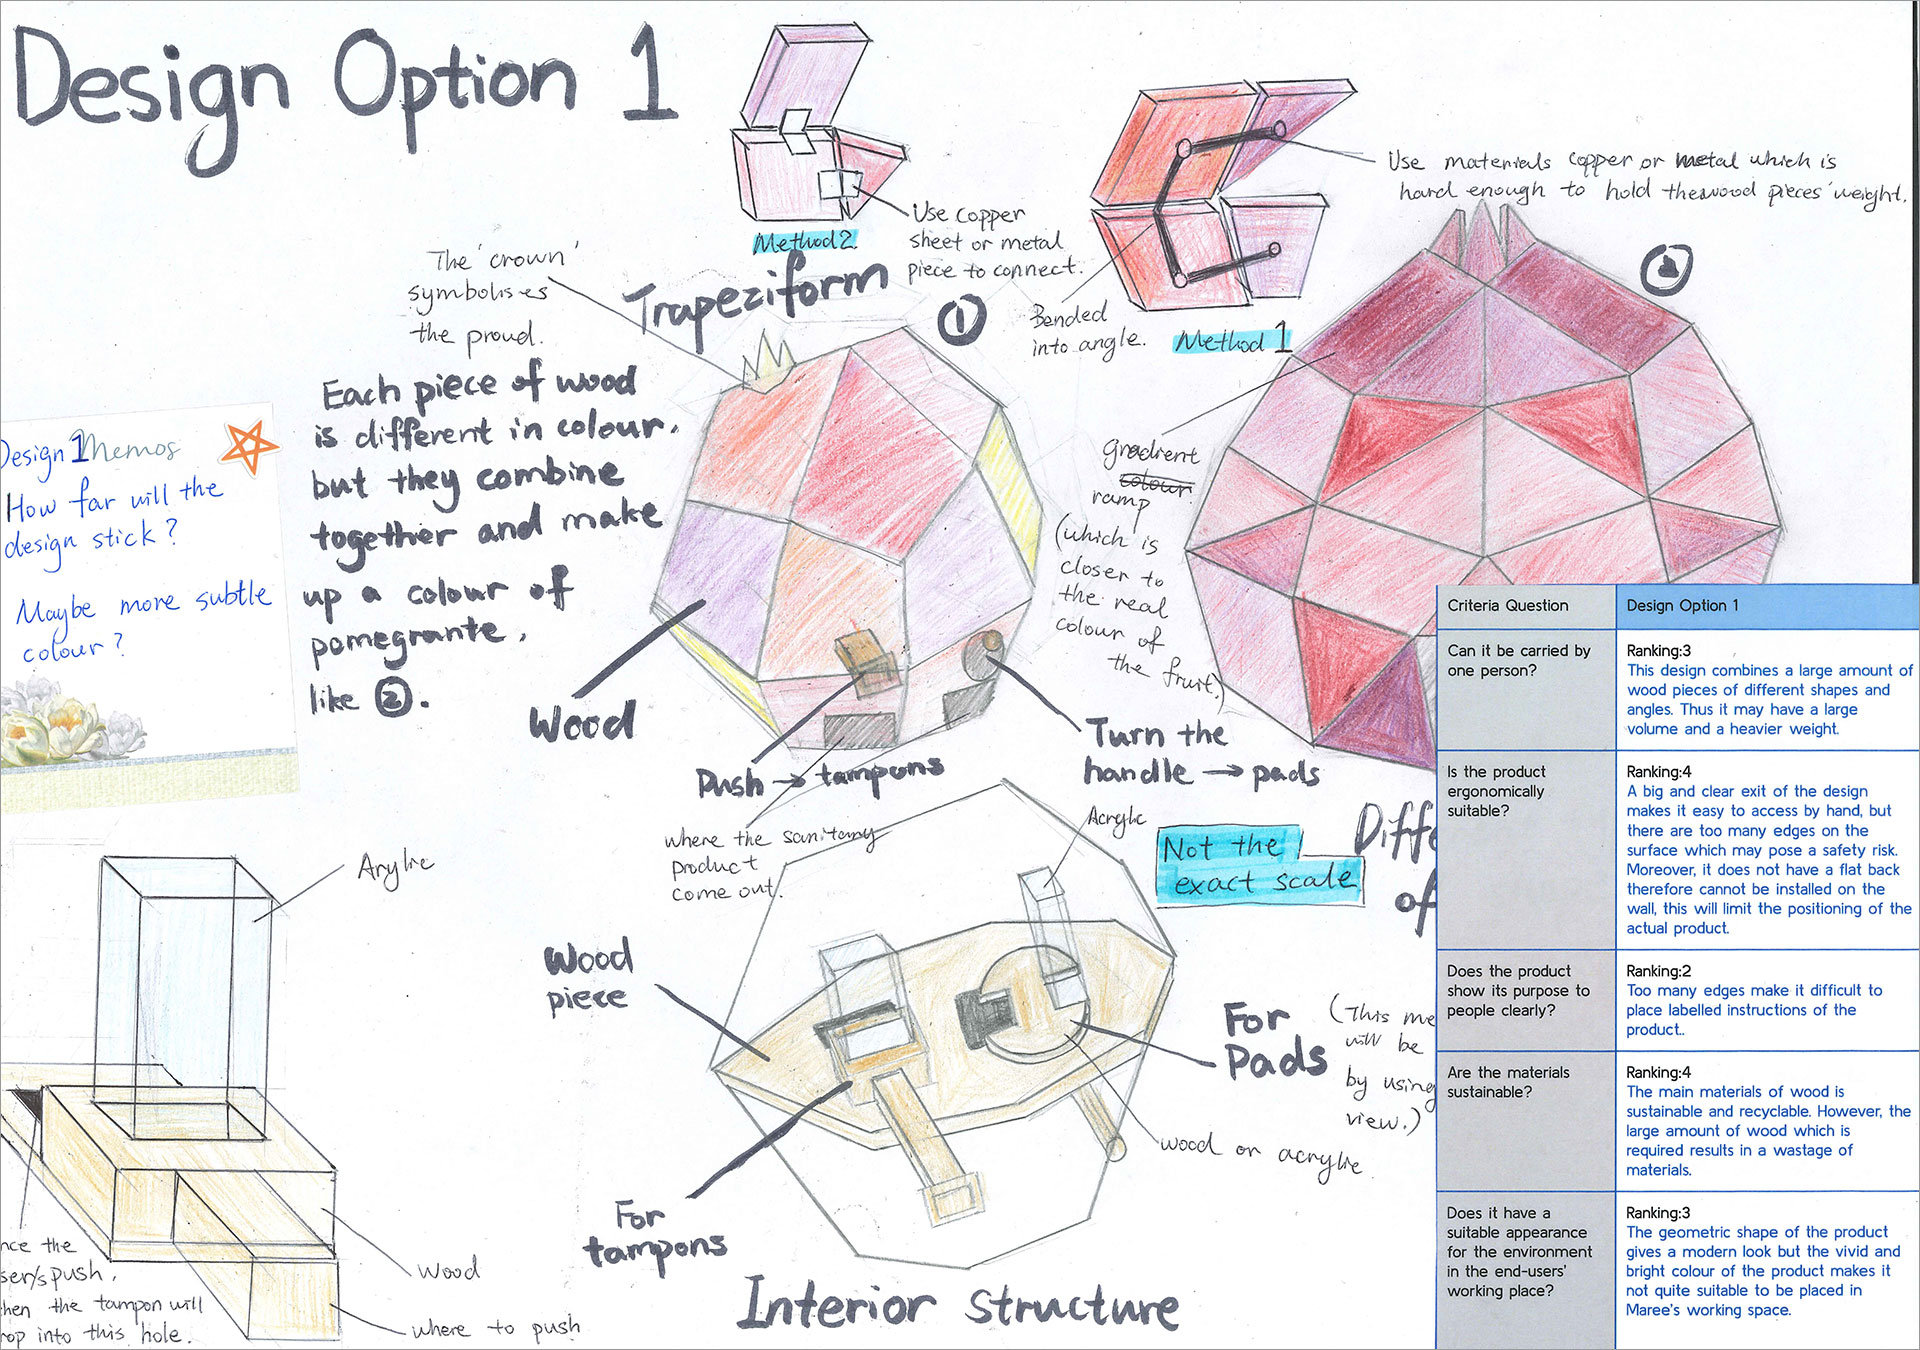 Design Option 1
Use copper
sheet or metal
piece to connect.
Method 2
Use materials copper or metal which is
hard enough to hold the wood pieces' weight.
Bended
into angle.
Method 1
The 'crown'
symbolises
the proud.
Trapeziform
1
2
Each piece of wood
is different in colour,
but they combine
together and make
up a colour of
pomegrante,
like 2.
Design 1 Memos
How far will the
design stick?
Maybe more subtle
colour?
gradient
colour
ramp
(which is
closer to
the real
colour of
the fruit.)
Wood
Push → tampons
Turn the
handle → pads
where the sanitary
product
come out.
Acrylic
Not the
exact scale
Diffe
of
Arylic
Wood
piece
For
Pads
(This me
will be
by using
view.)
wood or acrylic
For
tampons
Interior structure
nce the
ser/s push,
hen the tampon will
rop into this hole.
wood
where to push
Criteria Question
Design Option 1
Can it be carried by
one person?
Ranking:3
This design combines a large amount of
wood pieces of different shapes and
angles. Thus it may have a large
volume and a heavier weight.
Is the product
ergonomically
suitable?
Ranking:4
A big and clear exit of the design
makes it easy to access by hand, but
there are too many edges on the
surface which may pose a safety risk.
Moreover, it does not have a flat back
therefore cannot be installed on the
wall, this will limit the positioning of the
actual product.
Does the product
show its purpose to
people clearly?
Ranking:2
Too many edges make it difficult to
place labelled instructions of the
product..
Are the materials
sustainable?
Ranking:4
The main materials of wood is
sustainable and recyclable. However, the
large amount of wood which is
required results in a wastage of
materials.
Does it have a
suitable appearance
for the environment
in the end-users'
working place?
Ranking:3
The geometric shape of the product
gives a modern look but the vivid and
bright colour of the product makes it
not quite suitable to be placed in
Maree's working space.